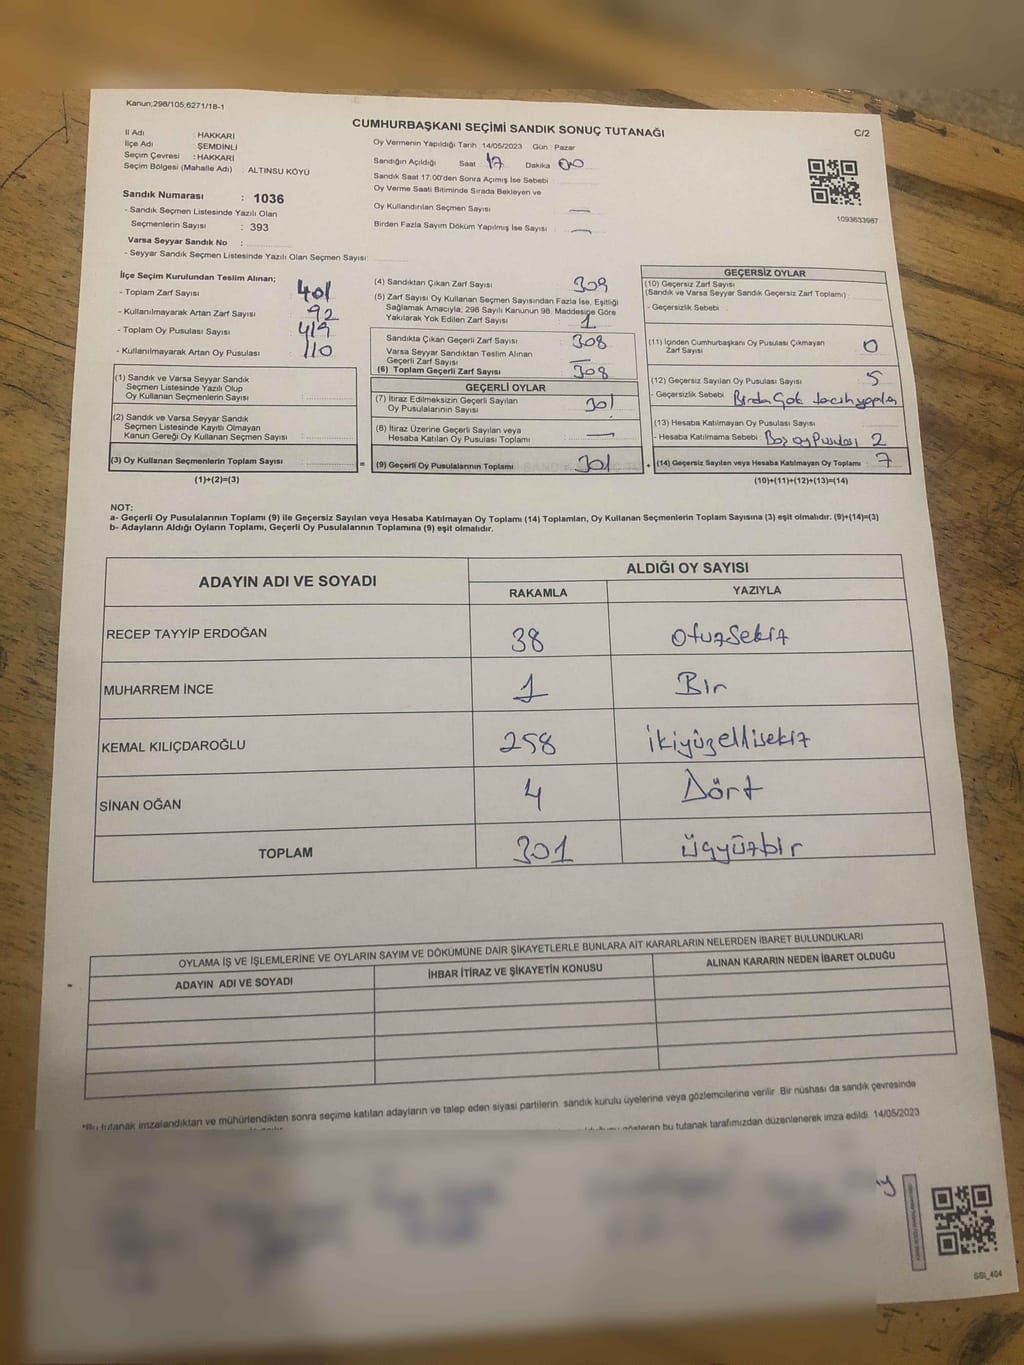 Kanun;298/105;6271/18-1
CUMHURBAŞKANI SEÇİMİ SANDIK SONUÇ TUTANAĞI
C/2
İl Adı : HAKKARİ
İlçe Adı : ŞEMDİNLİ
Seçim Çevresi : HAKKARİ
Seçim Bölgesi (Mahalle Adı) ALTINSU KÖYÜ
Sandık Numarası : 1036
- Sandık Seçmen Listesinde Yazılı Olan
Seçmenlerin Sayısı : 393
Varsa Seyyar Sandık No :
- Seyyar Sandık Seçmen Listesinde Yazılı Olan Seçmen Sayısı:
Oy Vermenin Yapıldığı Tarih : 14/05/2023 Gün : Pazar
Sandığın Açıldığı Saat 17 Dakika 00
Sandık Saat 17:00'den Sonra Açımış İse Sebebi
Oy Verme Saati Bitiminde Sırada Bekleyen ve
Oy Kullandırılan Seçmen Sayısı —
Birden Fazla Sayım Döküm Yapılmış İse Sayısı —
1093633987
İlçe Seçim Kurulundan Teslim Alınan;
- Toplam Zarf Sayısı 401
- Kullanılmayarak Artan Zarf Sayısı 92
- Toplam Oy Pusulası Sayısı 419
- Kullanılmayarak Artan Oy Pusulası 110
(1) Sandık ve Varsa Seyyar Sandık
Seçmen Listesinde Yazılı Olup
Oy Kullanan Seçmenlerin Sayısı :
(2) Sandık ve Varsa Seyyar Sandık
Seçmen Listesinde Kayıtlı Olmayan
Kanun Gereği Oy Kullanan Seçmen Sayısı :
(3) Oy Kullanan Seçmenlerin Toplam Sayısı =
(1)+(2)=(3)
(4) Sandıktan Çıkan Zarf Sayısı 309
(5) Zarf Sayısı Oy Kullanan Seçmen Sayısından Fazla İse, Eşitliği
Sağlamak Amacıyla; 298 Sayılı Kanunun 98. Maddesine Göre
Yakılarak Yok Edilen Zarf Sayısı 1
Sandıkta Çıkan Geçerli Zarf Sayısı 308
Varsa Seyyar Sandıktan Teslim Alınan
Geçerli Zarf Sayısı —
(6) Toplam Geçerli Zarf Sayısı 308
GEÇERLİ OYLAR
(7) İtiraz Edilmeksizin Geçerli Sayılan
Oy Pusulalarının Sayısı 301
(8) İtiraz Üzerine Geçerli Sayılan veya
Hesaba Katılan Oy Pusulası Toplamı —
(9) Geçerli Oy Pusulalarının Toplamı 301 +
GEÇERSİZ OYLAR
(10) Geçersiz Zarf Sayısı
(Sandık ve Varsa Seyyar Sandık Geçersiz Zarf Toplamı)
- Geçersizlik Sebebi
(11) İçinden Cumhurbaşkanı Oy Pusulası Çıkmayan
Zarf Sayısı 0
(12) Geçersiz Sayılan Oy Pusulası Sayısı 5
- Geçersizlik Sebebi
(13) Hesaba Katılmayan Oy Pusulası Sayısı
- Hesaba Katılmama Sebebi Boş oy Pusulası 2
(14) Geçersiz Sayılan veya Hesaba Katılmayan Oy Toplamı 7
(10)+(11)+(12)+(13)=(14)
NOT:
a- Geçerli Oy Pusulalarının Toplamı (9) ile Geçersiz Sayılan veya Hesaba Katılmayan Oy Toplamı (14) Toplamları, Oy Kullanan Seçmenlerin Toplam Sayısına (3) eşit olmalıdır. (9)+(14)=(3)
b- Adayların Aldığı Oyların Toplamı, Geçerli Oy Pusulalarının Toplamına (9) eşit olmalıdır.
ADAYIN ADI VE SOYADI
ALDIĞI OY SAYISI
RAKAMLA YAZIYLA
RECEP TAYYİP ERDOĞAN 38 Otuzsekiz
MUHARREM İNCE 1 Bir
KEMAL KILIÇDAROĞLU 258 İkiyüzellisekiz
SİNAN OĞAN 4 Dört
TOPLAM 301 üçyüzbir
OYLAMA İŞ VE İŞLEMLERİNE VE OYLARIN SAYIM VE DÖKÜMÜNE DAİR ŞİKAYETLERLE BUNLARA AİT KARARLARIN NELERDEN İBARET BULUNDUKLARI
ADAYIN ADI VE SOYADI İHBAR İTİRAZ VE ŞİKAYETİN KONUSU ALINAN KARARIN NEDEN İBARET OLDUĞU
*Bu tutanak imzalandıktan ve mühürlendikten sonra seçime katılan adayların ve talep eden siyasi partilerin sandık kurulu üyelerine veya gözlemcilerine verilir. Bir nüshası da sandık çevresinde
gösteren bu tutanak tarafımızdan düzenlenerek imza edildi. 14/05/2023
SSI_404